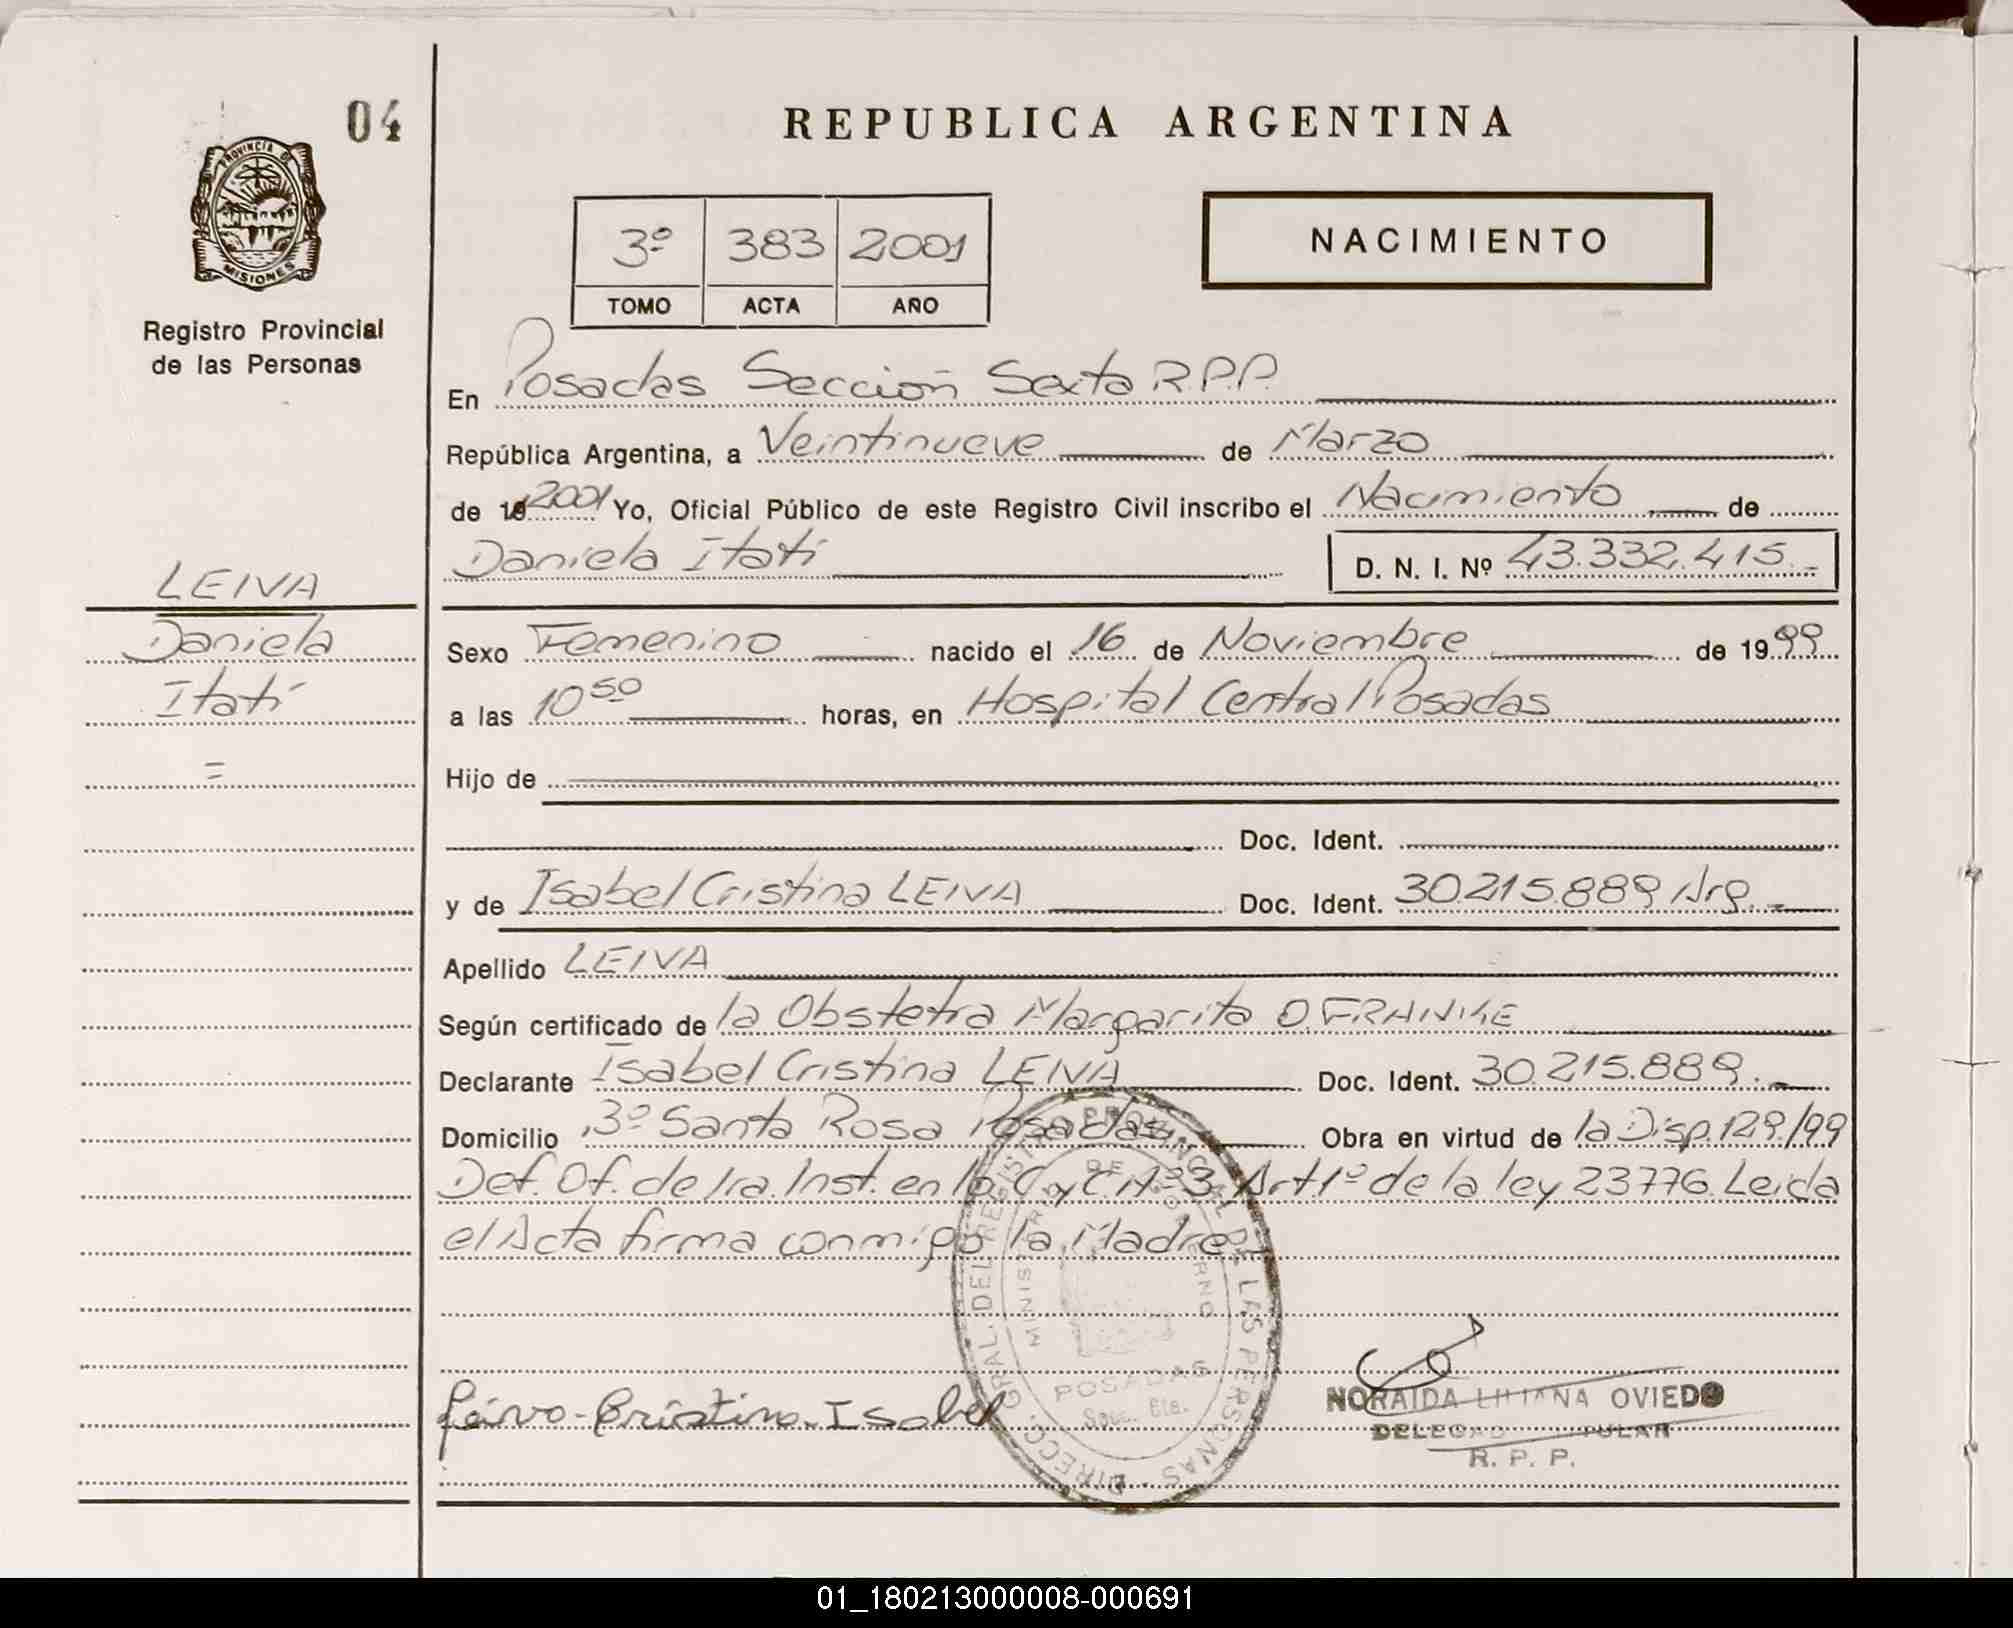 04
PROVINCIA DE
MISIONES
Registro Provincial
de las Personas
REPUBLICA ARGENTINA
3º 383 2001
TOMO ACTA AÑO
NACIMIENTO
En Posadas Sección Sexta R.P.P.
República Argentina, a Veintinueve de Marzo
de 2001 Yo, Oficial Público de este Registro Civil inscribo el Nacimiento de
Daniela Itatí D. N. I. Nº 43.332.415.-
LEIVA
Daniela
Itatí
=
Sexo Femenino nacido el 16 de Noviembre de 1999
a las 10 50 horas, en Hospital Central Posadas
Hijo de
Doc. Ident.
y de Isabel Cristina LEIVA Doc. Ident. 30.215.889 Arg.-
Apellido LEIVA
Según certificado de la Obstetra Margarita O. FRANKE
Declarante Isabel Cristina LEIVA Doc. Ident. 30.215.889.-
Domicilio 3º Santa Rosa Posadas Obra en virtud de la Disp. 129/99
Def. Of. de 1ra. Inst. en lo C y C Nº 3 Art 1º de la ley 23776. Leida
el Acta firma conmigo la Madre
DIRECC. GRAL. DEL REGISTRO PROVINCIAL DE LAS PERSONAS
MINISTERIO DE GOBIERNO
POSADAS
Secc. 6ta.
Leiva - Cristina - Isabel
NORAIDA LILIANA OVIEDO
R. P. P.
01_180213000008-000691